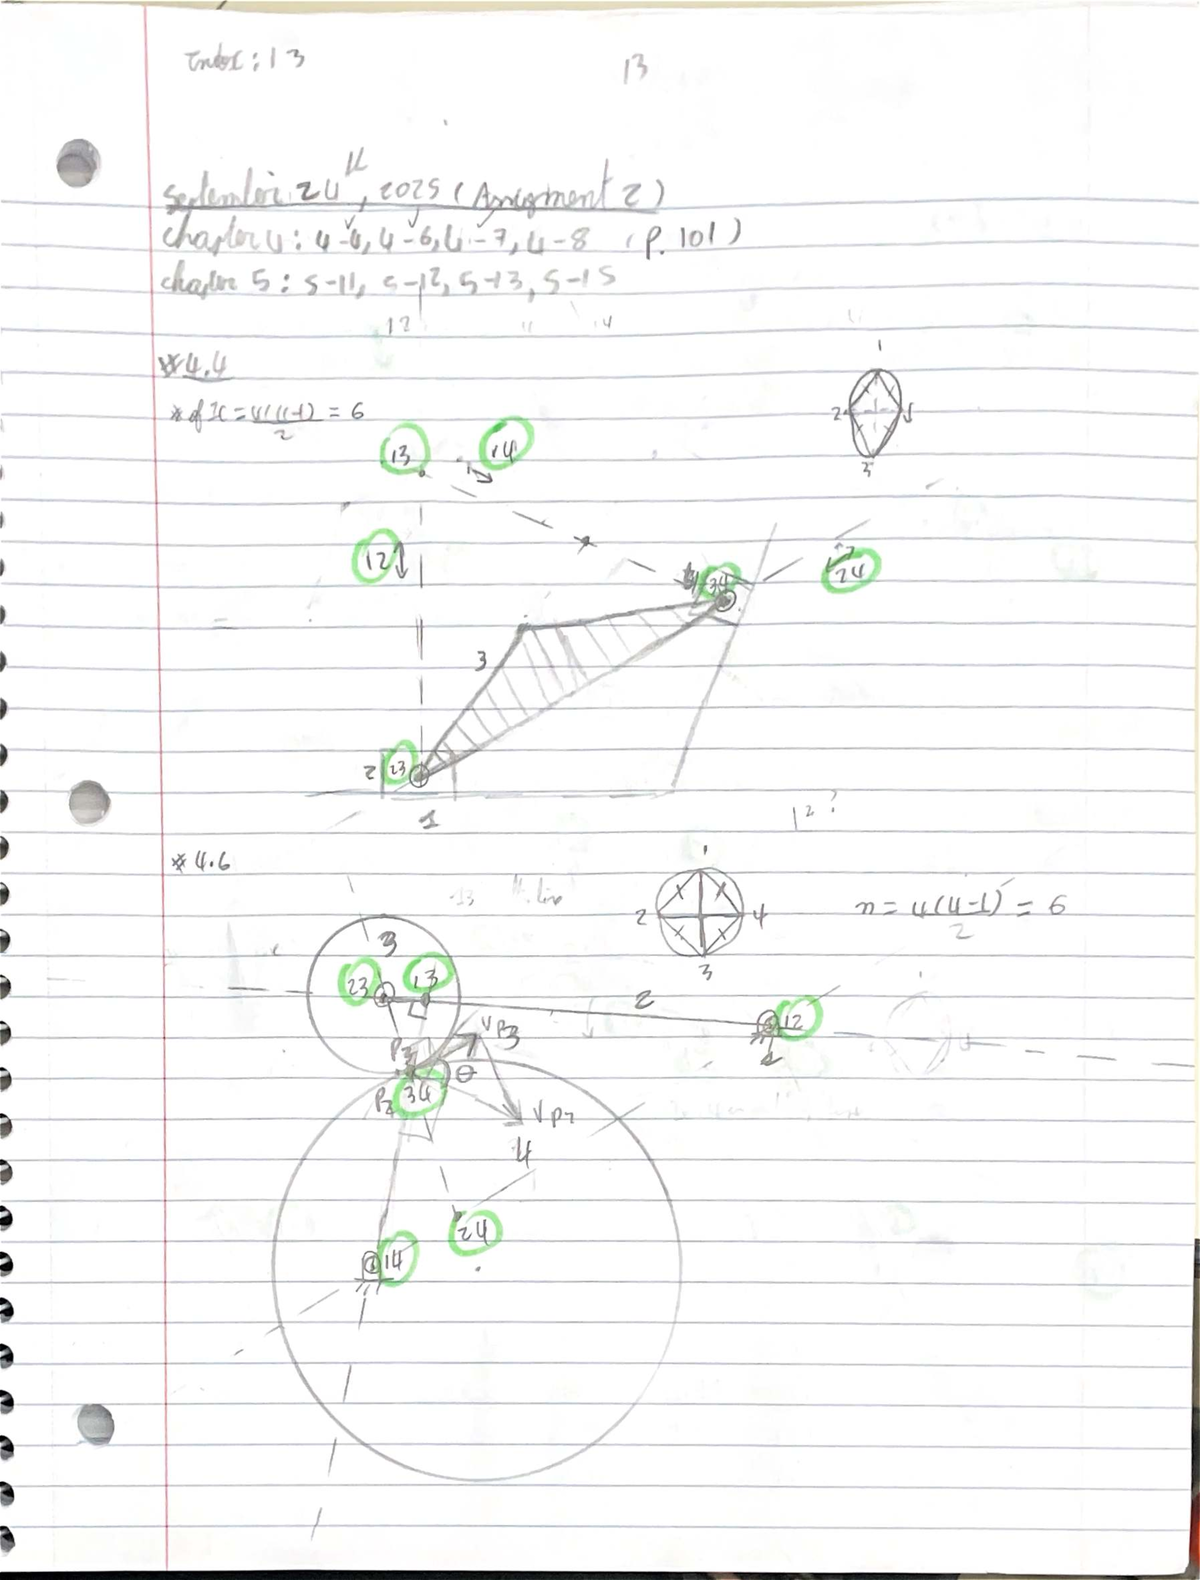 Index: 13
13
September 24th, 2025 (Assignment 2)
chapter 4: 4-4, 4-6, 4-7, 4-8 (P. 101)
chapter 5: 5-11, 5-12, 5-13, 5-15
12 11 14
#4.4
# of IC = 4(4-1) = 6
2
1
2
3
13 14
12
34
24
3
2 23
1
12?
#4.6
1
2 4
3
n = 4(4-1) = 6
2
13
3
23 13
2
12
1
VP3
P3
θ
P2 34
VP2
4
24
14